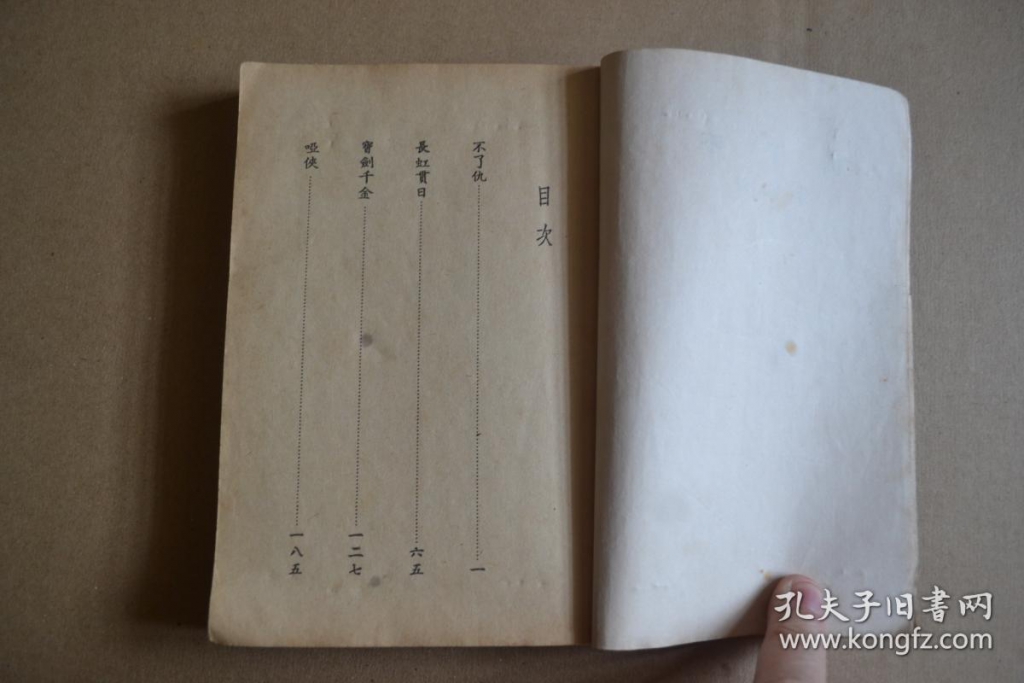 目次
不了仇……一
長虹貫日……六五
寶劍千金……一二七
啞俠……一八五
孔夫子旧书网
www.kongfz.com